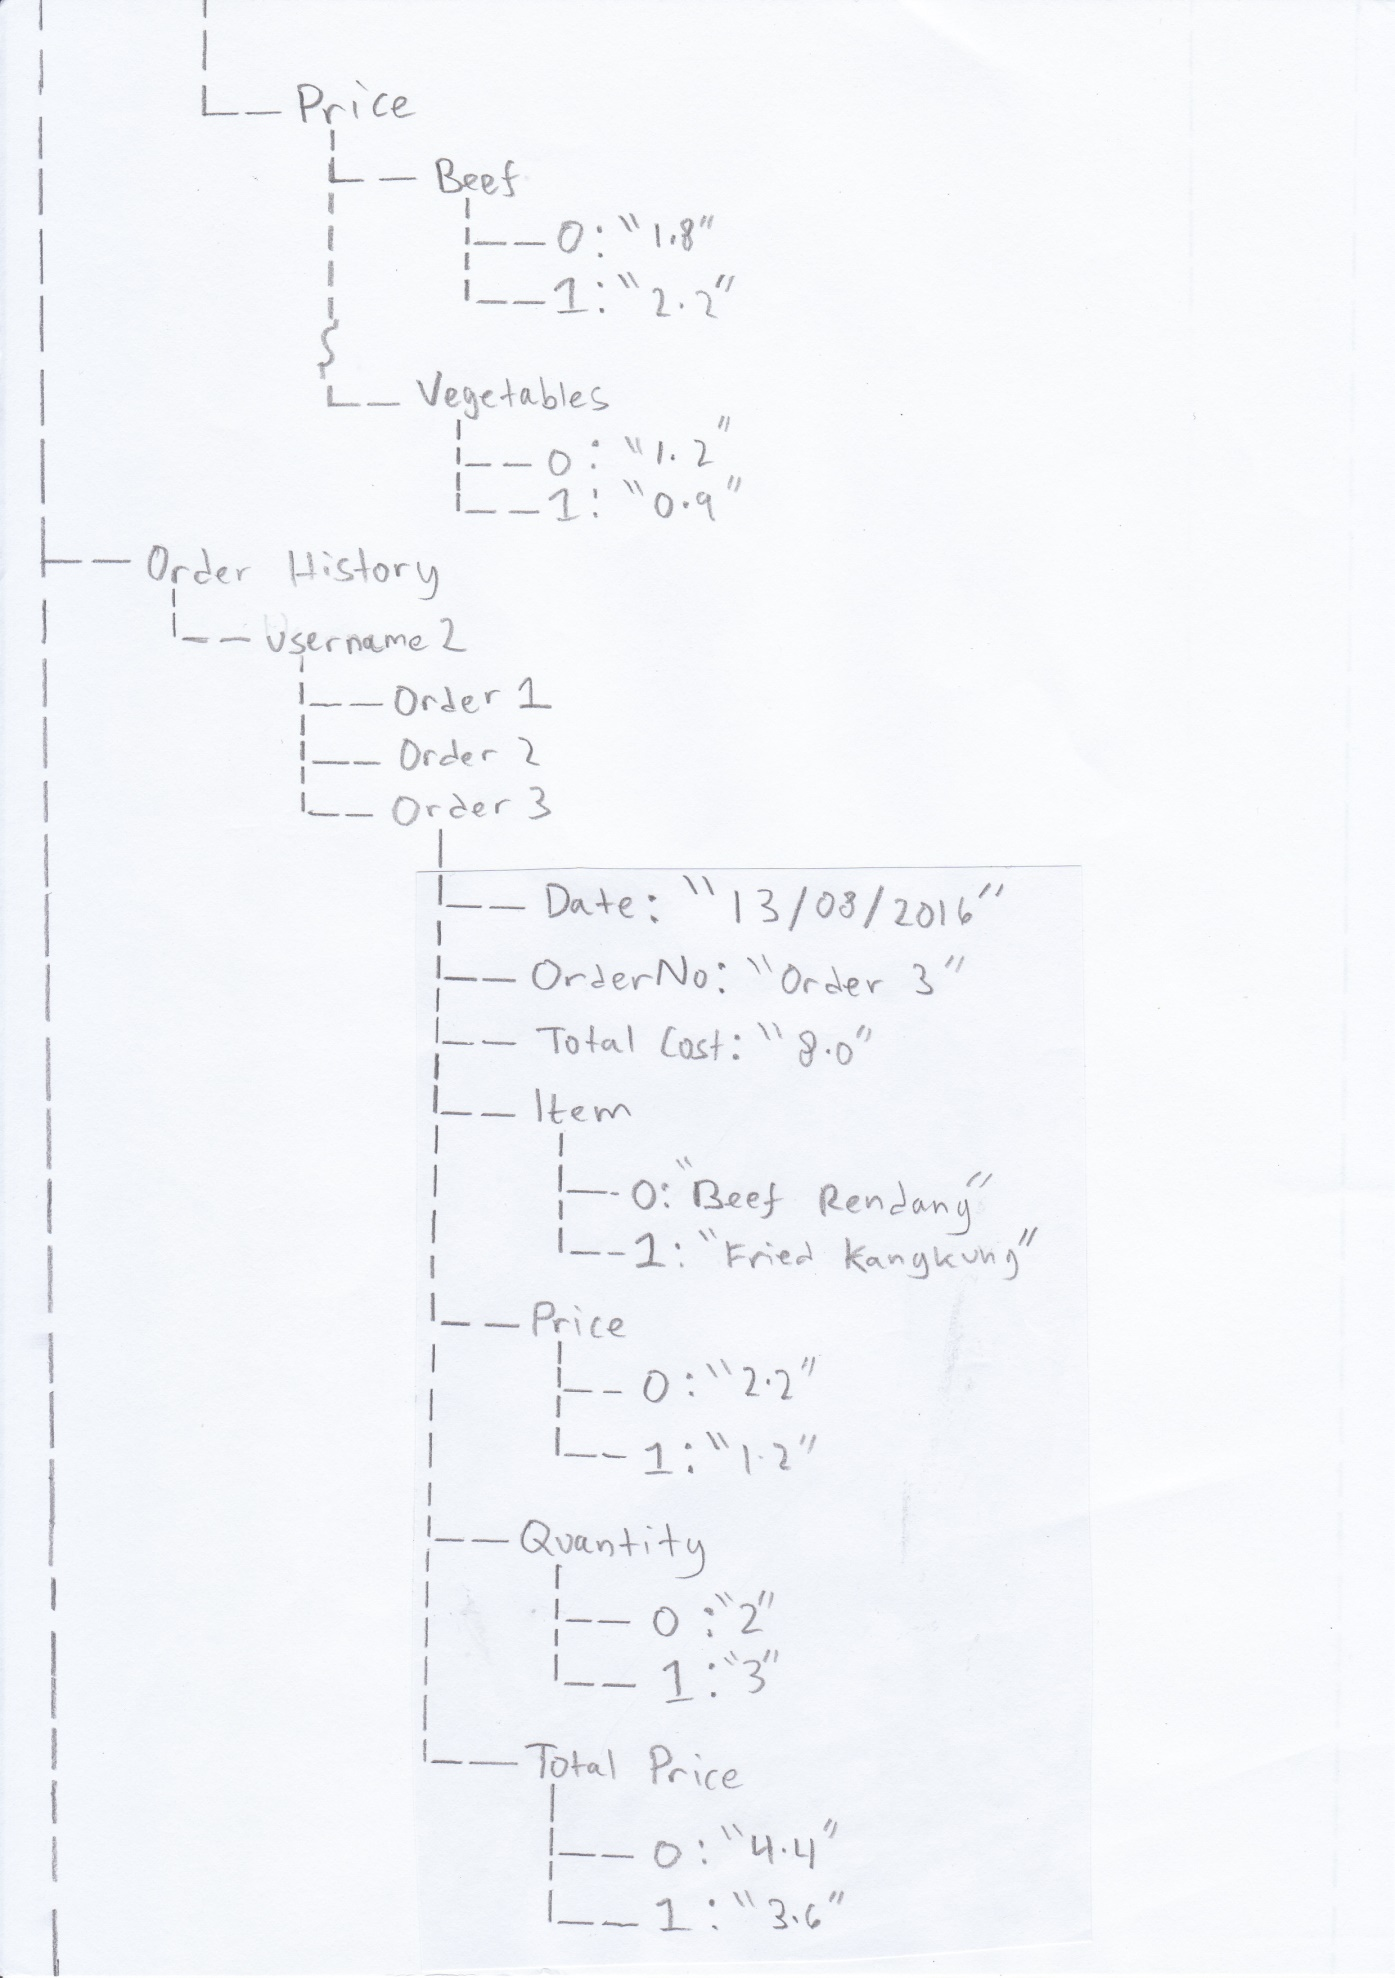 Price
Beef
0: "1.8"
1: "2.2"
Vegetables
0: "1.2"
1: "0.9"
Order History
Username 2
Order 1
Order 2
Order 3
Date: "13/08/2016"
OrderNo: "Order 3"
Total Cost: "8.0"
Item
0: "Beef Rendang"
1: "Fried Kangkung"
Price
0: "2.2"
1: "1.2"
Quantity
0: "2"
1: "3"
Total Price
0: "4.4"
1: "3.6"